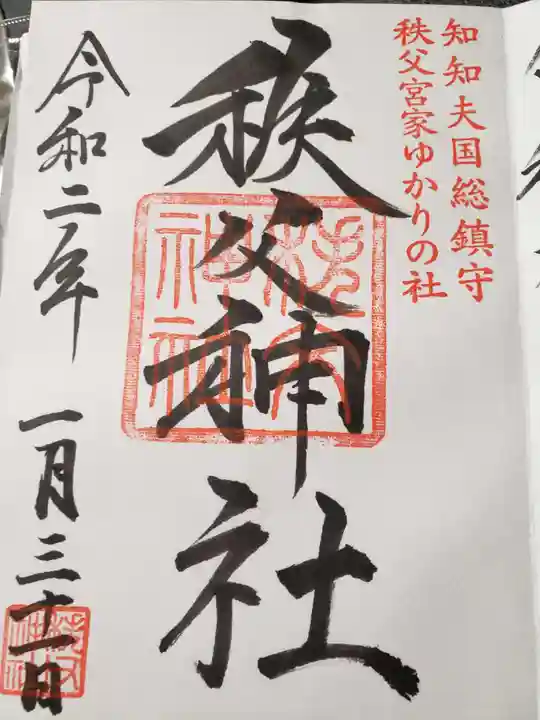 知知夫国総鎮守
秩父宮家ゆかりの社
秩父神社
秩父神社
令和二年 一月三十一日
秩父神社